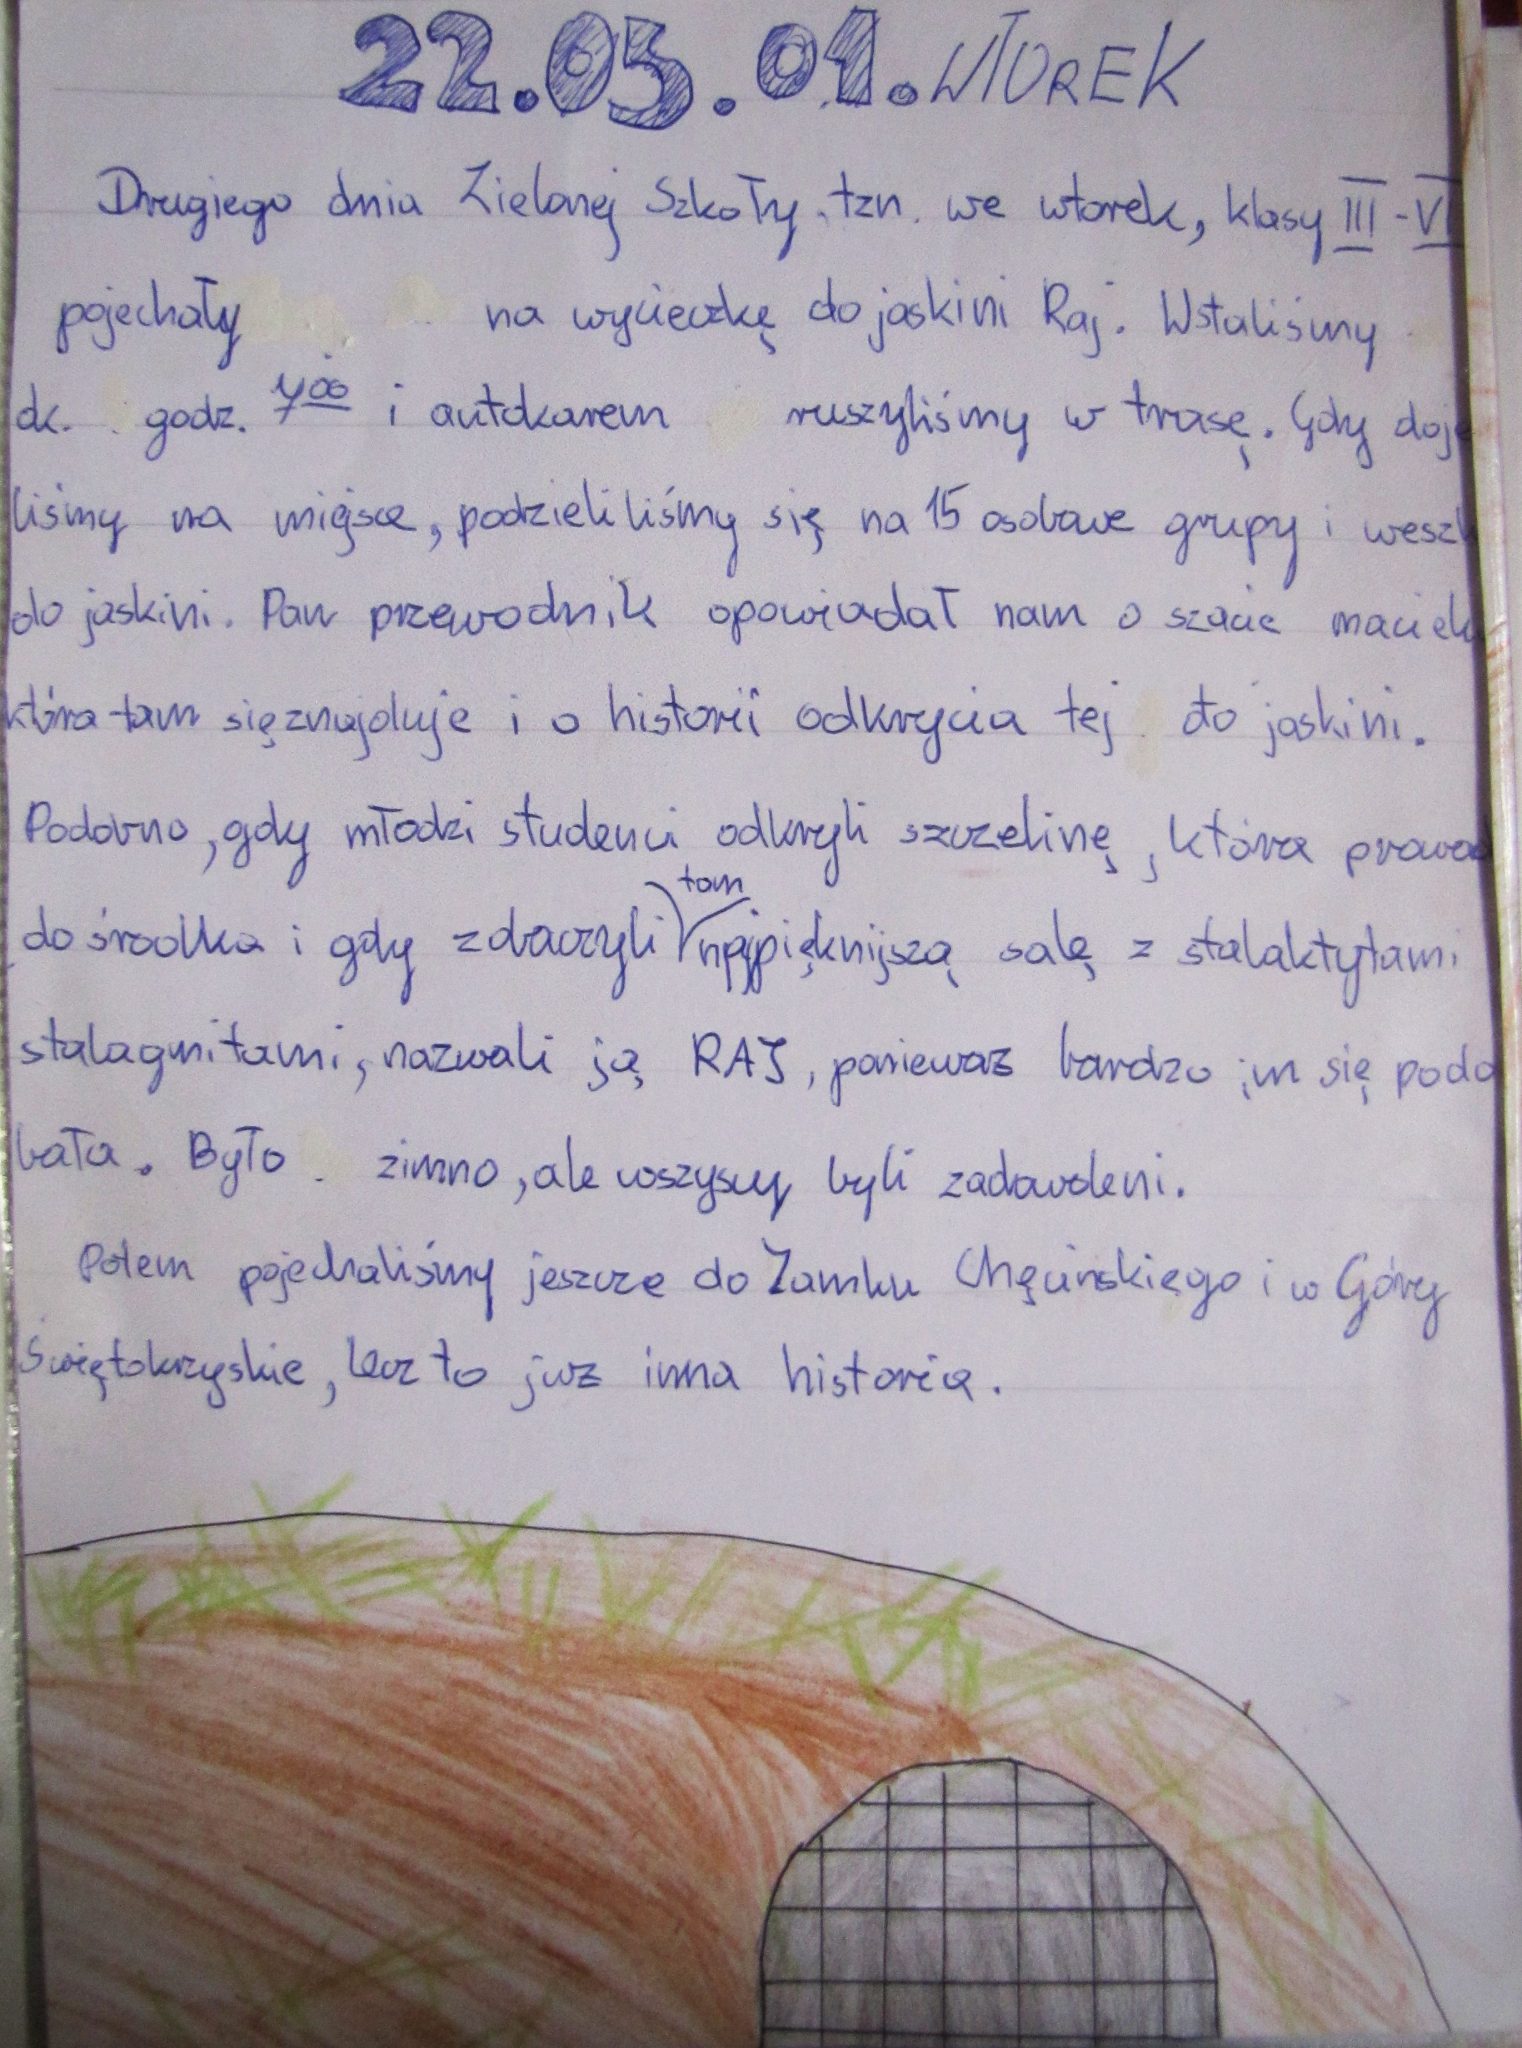 22.05.01. WTOREK
Drugiego dnia Zielonej Szkoły, tzn. we wtorek, klasy III - VI
pojechały na wycieczkę do jaskini Raj. Wstaliśmy
ok. godz. 7 00 i autokarem ruszyliśmy w trasę. Gdy doje
liśmy na miejsce, podzieliliśmy się na 15 osobowe grupy i weszl
do jaskini. Pan przewodnik opowiadał nam o szacie naciek
która tam się znajduje i o historii odkrycia tej oto jaskini.
Podobno, gdy młodzi studenci odkryli szczelinę, która prowad
do środka i gdy zobaczyli tam najpięknijszą salę z stalaktytami
stalagmitami, nazwali ją RAJ, ponieważ bardzo im się podo
bała. Było zimno, ale wszyscy byli zadowoleni.
Potem pojechaliśmy jeszcze do Zamku Chęcińskiego i w Góry
Świętokrzyskie, lecz to już inna historia.